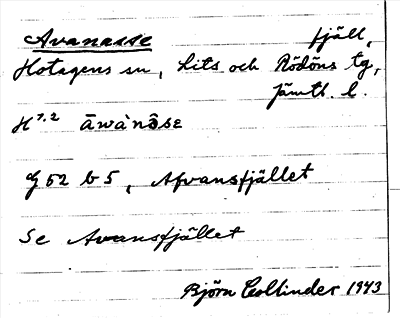 Avanasse fjäll,
Hotagens sn, Lits och Rödöns tg,
Jämtl. l.
H 7.2 āwànô̄se
G 52 b 5, Afvansfjället
Se Avansfjället
Björn Collinder 1943